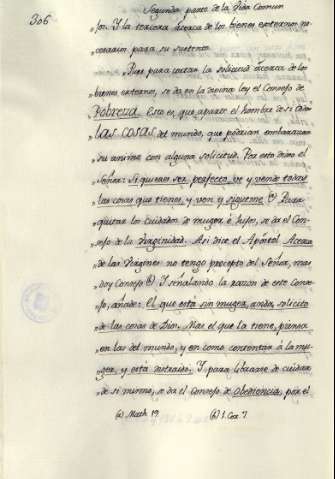 306
Segunda parte de la Vida Comun
los. Y la tercera acerca de los bienes externos ne-
cesarios para su sustento.
Pues para quitar la solicitud acerca de los
bienes externos, se da en la divina ley el Consejo de
Pobreza. Esto es, que aparte el hombre de si todas
las cosas del mundo, que podrian embarazar
su animo con alguna solicitud. Por esto dixo el
Señor: Si quieres ser perfecto, ve y vende todas
las cosas que tienes, y ven, y sigueme (a) Para
quitar los cuidados de muger, é hijos, se da el Con-
sejo de la Virginidad. Asi dice el Apóstol: Acerca
de las Virgenes no tengo precepto del Señor, mas
doy Consejo (b) Y señalando la razon de este Conse-
jo, añade: El que está sin muger, anda solicito
de las cosas de Dios. Mas el que la tiene, piensa
en las del mundo, y en como contentar á la mu-
ger, y está distraido. Y para librarse de cuidar
de si mismo, se da el Consejo de Obediencia, por el
(a) Math. 19. (b) 1. Cor. 7.